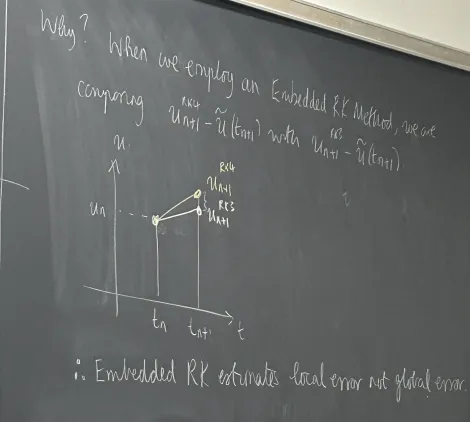 Why? When we employ an Embedded RK Method, we are
comparing u_{n+1}^{RK4} - ũ(t_{n+1}) with u_{n+1}^{RK3} - ũ(t_{n+1}).
u
u_{n+1}^{RK4}
u_n
u_{n+1}^{RK3}
t_n t_{n+1} t
∴ Embedded RK estimates local error not global error.